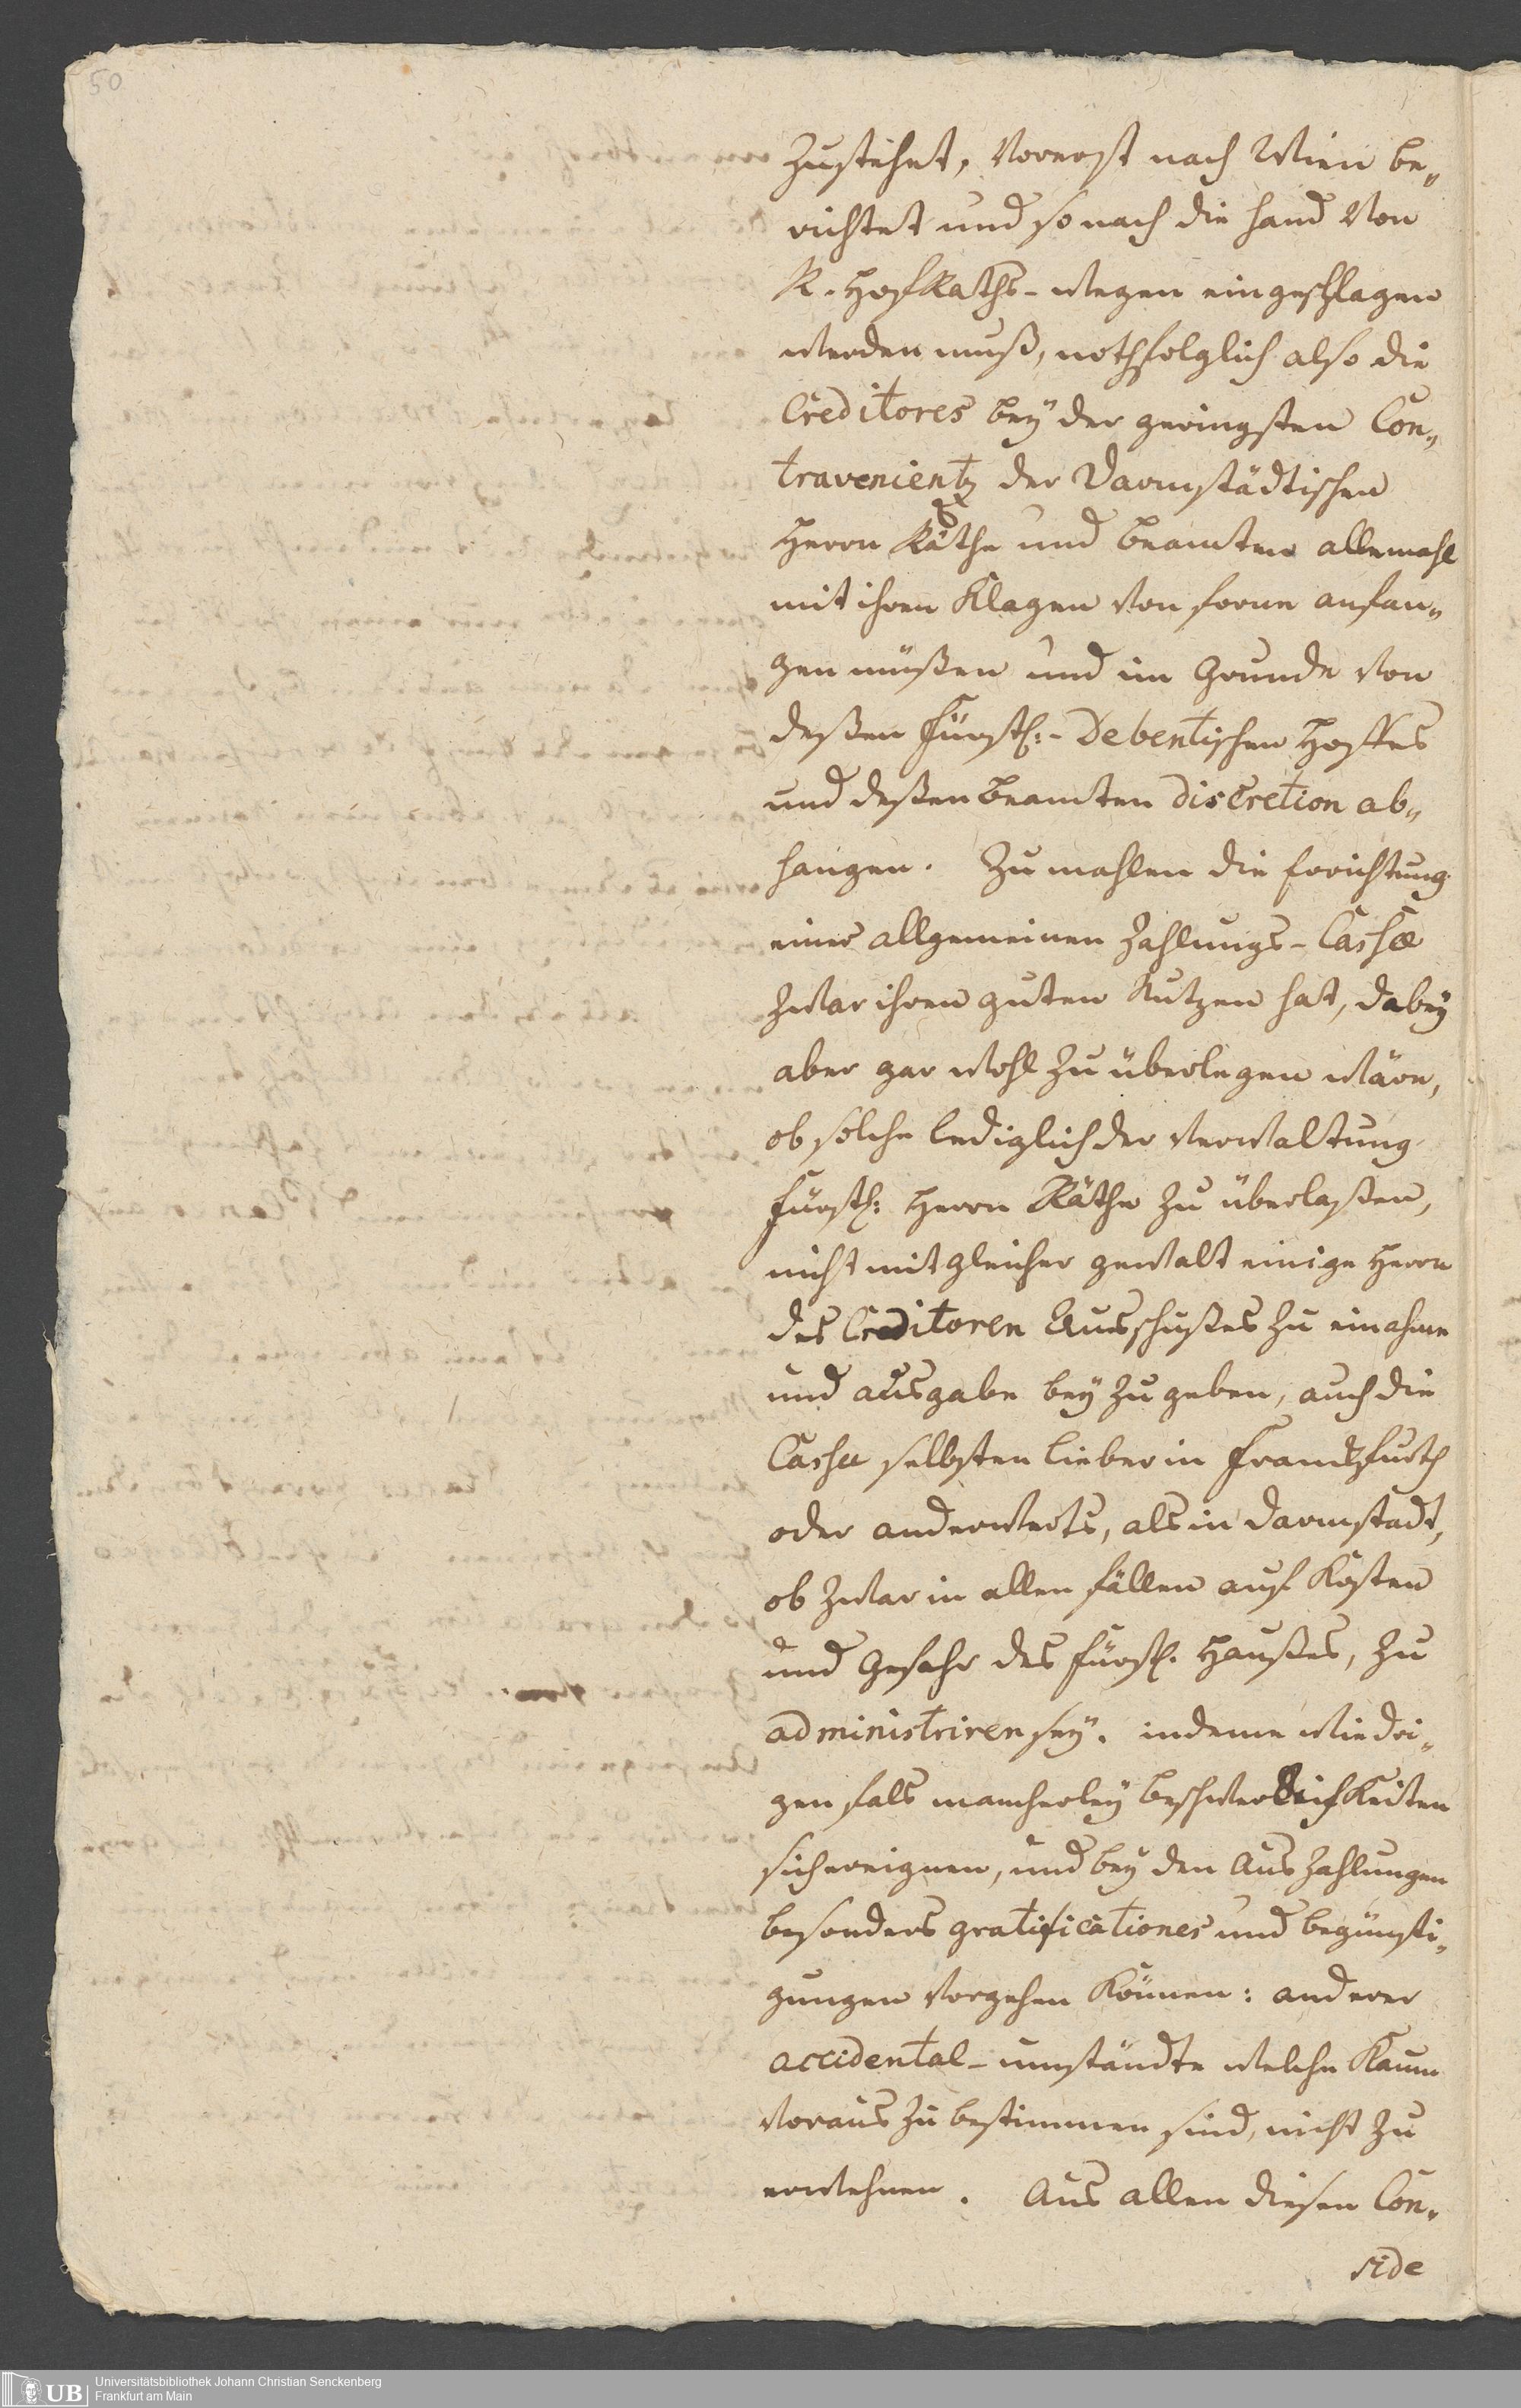 50
zustehet, vorerst nach Wien be„
richtet und so nach die hand von
R. HofRaths-wegen eingeschlagen
werden muß, nothfolglich also die
Creditores bey der geringsten Con„
travenientz der Darmstädtischen
Herrn Räthe und beamten allemahl
mit ihren Klagen von forne anfan„
gen müßen und im Grunde von
deßen Fürstl:-Debentischen Hoffes
und deßen beamten discretion ab„
hangen. Zumahlen die Errichtung
einer allgemeinen Zahlungs-Cassæ
zwar ihren guten Nutzen hat, dabey
aber gar wohl zu überlegen wäre,
ob solche lediglich der verwaltung
Fürstl: Herrn Räthe zu überlaßen,
nicht mit gleicher gewalt einige Herrn
des Creditoren Ausschußes zu einahme
und ausgabe bey zu geben, auch die
Cassa selbsten lieber in Franckfurth
oder anderwerts, als in Darmstadt,
ob zwar in allen fällen auf Kosten
und Gefahr des fürstl. Haußes, zu
administriren sey. indeme wiedri„
gen fals mancherley beschwerlichkeiten
sich ereignen, und bey den Auszahlungen
besonders gratificationes und begünsti„
gungen vorgehen können: anderer
accidental-umständte welche kaum
voraus zu bestimmen sind, nicht zu
erwehnen. Aus allen diesen Con„
side
UB
Universitätsbibliothek Johann Christian Senckenberg
Frankfurt am Main